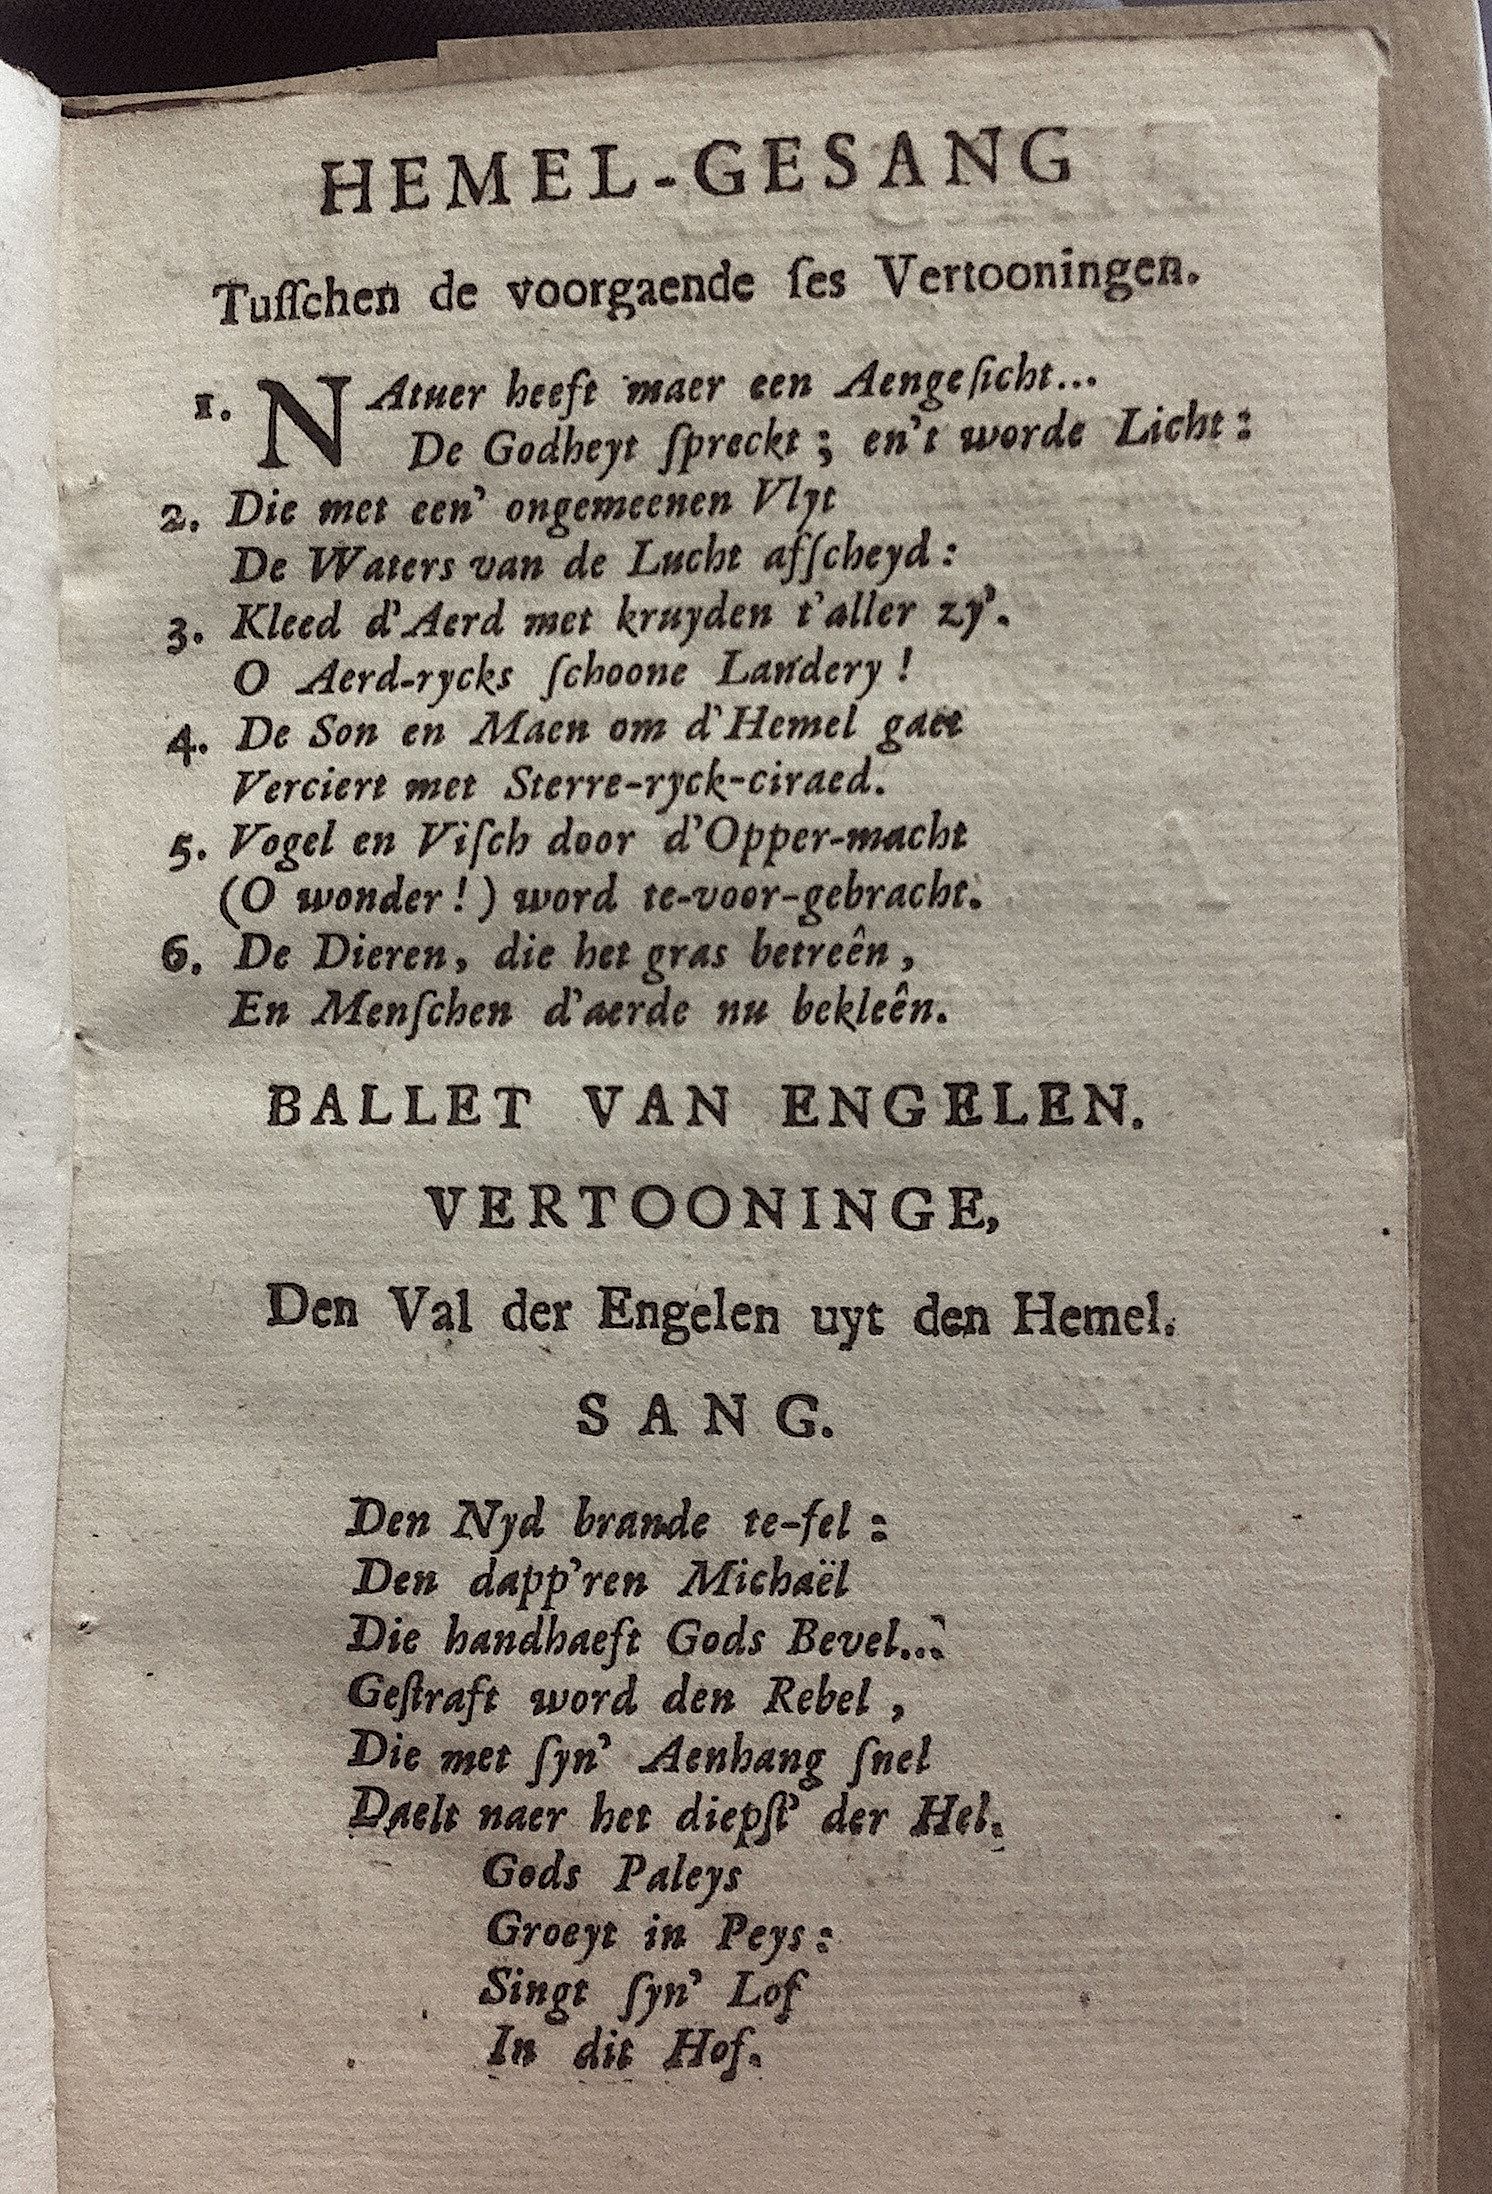 HEMEL-GESANG
Tuſſchen de voorgaende ſes Vertooningen.
1. NAtuer heeft maer een Aengeſicht...
De Godheyt ſpreckt; en't worde Licht:
2. Die met een' ongemeenen Vlyt
De Waters van de Lucht afſcheyd:
3. Kleed d'Aerd met kruyden t'aller zy'.
O Aerd-rycks ſchoone Landery!
4. De Son en Maen om d'Hemel gaet
Verciert met Sterre-ryck-ciraed.
5. Vogel en Viſch door d'Opper-macht
(O wonder!) word te-voor-gebracht.
6. De Dieren, die het gras betreên,
En Menſchen d'aerde nu bekleên.
BALLET VAN ENGELEN.
VERTOONINGE,
Den Val der Engelen uyt den Hemel.
SANG.
Den Nyd brande te-fel:
Den dapp'ren Michaël
Die handhaeft Gods Bevel...
Geſtraft word den Rebel,
Die met ſyn' Aenhang ſnel
Daelt naer het diepſt' der Hel.
Gods Paleys
Groeyt in Peys:
Singt ſyn' Lof
In dit Hof.